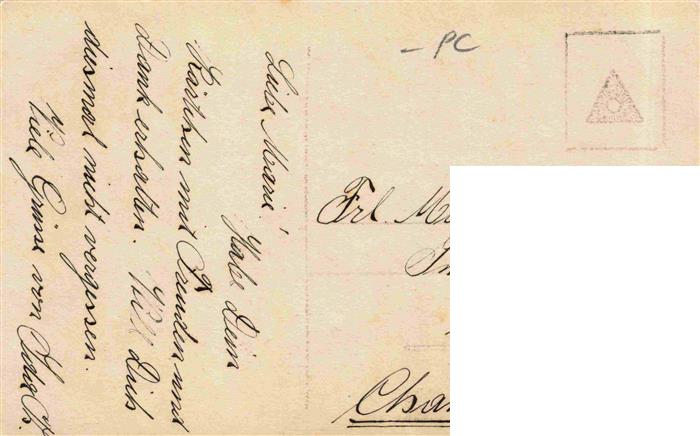 – PC
Liebe Marie!
Habe Dein
Kärtchen mit Freuden und
Dank erhalten. Will Dich
diesmal nicht vergessen.
Viele Grüsse von
Frl. M
Cha